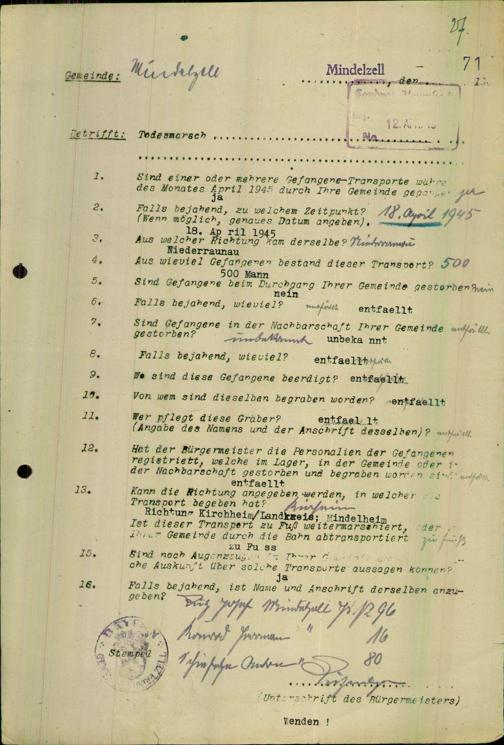 27
71
Gemeinde: Mindelzell
Mindelzell, den
12.
No.
Betrifft: Todesmarsch
1. Sind einer oder mehrere Gefangene-Transporte
des Monates April 1945 durch Ihre Gemeinde
ja
2. Falls bejahend, zu welchem Zeitpunkt? 18. April 1945
(Wenn möglich, genaues Datum angeben).
18. Ap ril 1945
3. Aus welcher Richtung kam derselbe? Niederraunau
Niederraunau
4. Aus wieviel Gefangenen bestand dieser Transport? 500
500 Mann
5. Sind Gefangene beim Durchgang Ihrer Gemeinde gestorben? nein
nein
6. Falls bejahend, wieviel? entfällt entfaellt
7. Sind Gefangene in der Nachbarschaft Ihrer Gemeinde entfällt
gestorben? unbekannt unbeka nnt
8. Falls bejahend, wieviel? entfaellt
9. Wo sind diese Gefangene beerdigt? entfaellt
10. Von wem sind dieselben begraben worden? entfaellt
11. Wer pflegt diese Gräber? entfael lt
(Angabe des Namens und der Anschrift desselben)? entfällt
12. Hat der Bürgermeister die Personalien der Gefangenen
registriert, welche im Lager, in der Gemeinde oder
der Nachbarschaft gestorben und begraben worden sind entfällt
entfaellt
13. Kann die Richtung angegeben werden, in welcher
Transport begeben hat? Kirchheim
Richtung Kirchheim/Landkreis: Mindelheim
Ist dieser Transport zu Fuß weitermarschiert, oder
Ihrer Gemeinde durch die Bahn abtransportiert zu Fuß
zu Fu ss
15. Sind noch Augenzeugen in Ihrer
che Auskunft über solche Transporte aussagen können?
ja
16. Falls bejahend, ist Name und Anschrift derselben anzu-
geben? Josef Mindelzell Hs. Nr 96
Konrad Herman " 16
" 80
BAYERN
Stempel
(Unterschrift des Bürgermeisters)
Wenden !